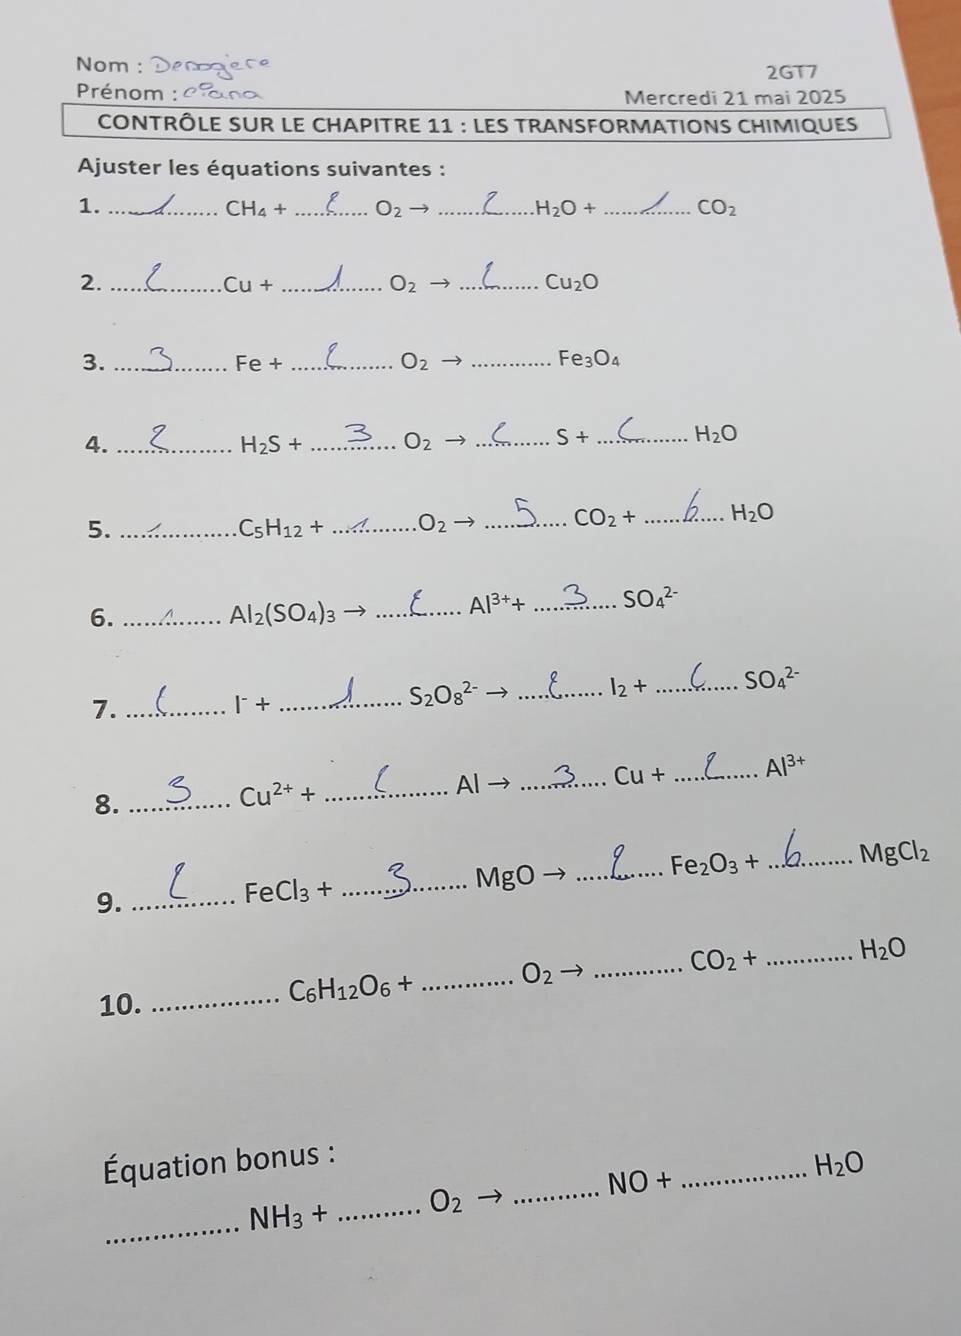 Nom : Derogere
2GT7
Prénom :
Mercredi 21 mai 2025
CONTRÔLE SUR LE CHAPITRE 11 : LES TRANSFORMATIONS CHIMIQUES
Ajuster les équations suivantes :
1. ...1... CH₄ + ...2... O₂ → ...2... H₂O + ...1... CO₂
2. ...2... Cu + ...1... O₂ → ...... Cu₂O
3. ...3... Fe + ...2... O₂ → ...... Fe₃O₄
4. ...2... H₂S + ...3... O₂ → ...... S + ...... H₂O
5. ...1... C₅H₁₂ + ...1... O₂ → ...5... CO₂ + ...6... H₂O
6. ...1... Al₂(SO₄)₃ → ...2... Al³⁺ + ...3... SO₄²⁻
7. ...... I⁻ + ...1... S₂O₈²⁻ → ...2... I₂ + ...... SO₄²⁻
8. ...3... Cu²⁺ + ...2... Al → ...3... Cu + ...2... Al³⁺
9. ...2... FeCl₃ + ...3... MgO → ...2... Fe₂O₃ + ...6... MgCl₂
10. ...... C₆H₁₂O₆ + ...... O₂ → ...... CO₂ + ...... H₂O
Équation bonus :
...... NH₃ + ...... O₂ → ...... NO + ...... H₂O